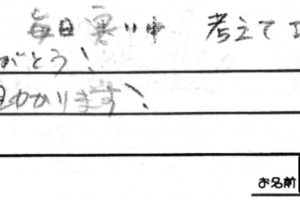 毎日寒い中 考えて
がとう!
かります!
お名前